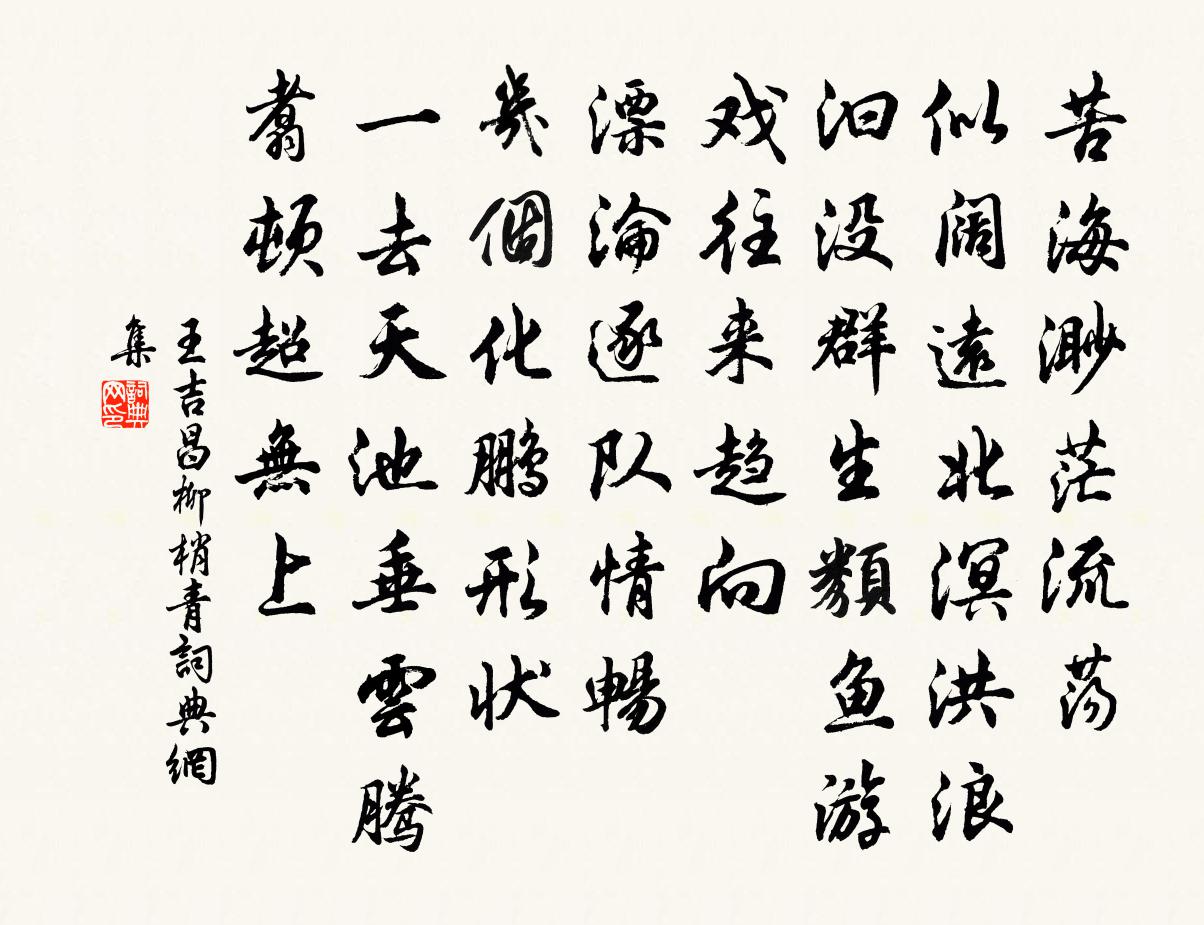 苦海渺茫流荡
似阔遠北溟洪浪
汩没群生類魚游
戏往来趋向
漂淪逐队情暢
幾個化鹏形状
一去天池垂雲騰
翥頓超無上
王吉昌柳梢青詞典網
集
詞典
网印